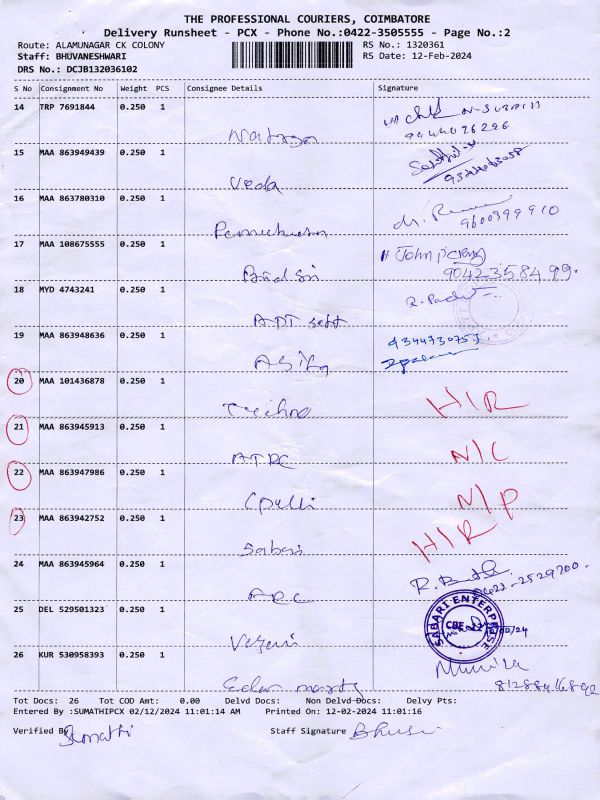 THE PROFESSIONAL COURIERS, COIMBATORE
Delivery Runsheet - PCX - Phone No.:0422-3505555 - Page No.:2
Route: ALAMUNAGAR CK COLONY
RS No.: 1320361
Staff: BHUVANESHWARI
RS Date: 12-Feb-2024
DRS No.: DCJB132036102
S No Consignment No Weight PCS Consignee Details Signature
14 TRP 7691844 0.250 1
15 MAA 863949439 0.250 1
Veda
16 MAA 863780310 0.250 1
9600399910
17 MAA 108675555 0.250 1 John
9042358499.
18 MYD 4743241 0.250 1
19 MAA 863948636 0.250 1
20 MAA 101436878 0.250 1
Techno H/R
21 MAA 863945913 0.250 1
ATRC N/C
22 MAA 863947986 0.250 1
N/P
23 MAA 863942752 0.250 1 H/R
Sabari
24 MAA 863945964 0.250 1
0422-2529700.
25 DEL 529501323 0.250 1 SABARI ENTERPRISE
CBE
26 KUR 530958393 0.250 1
Tot Docs: 26 Tot COD Amt: 0.00 Delvd Docs: Non Delvd Docs: Delvy Pts:
Entered By :SUMATHIPCX 02/12/2024 11:01:14 AM Printed On: 12-02-2024 11:01:16
Verified By Sumathi Staff Signature Bhuvi